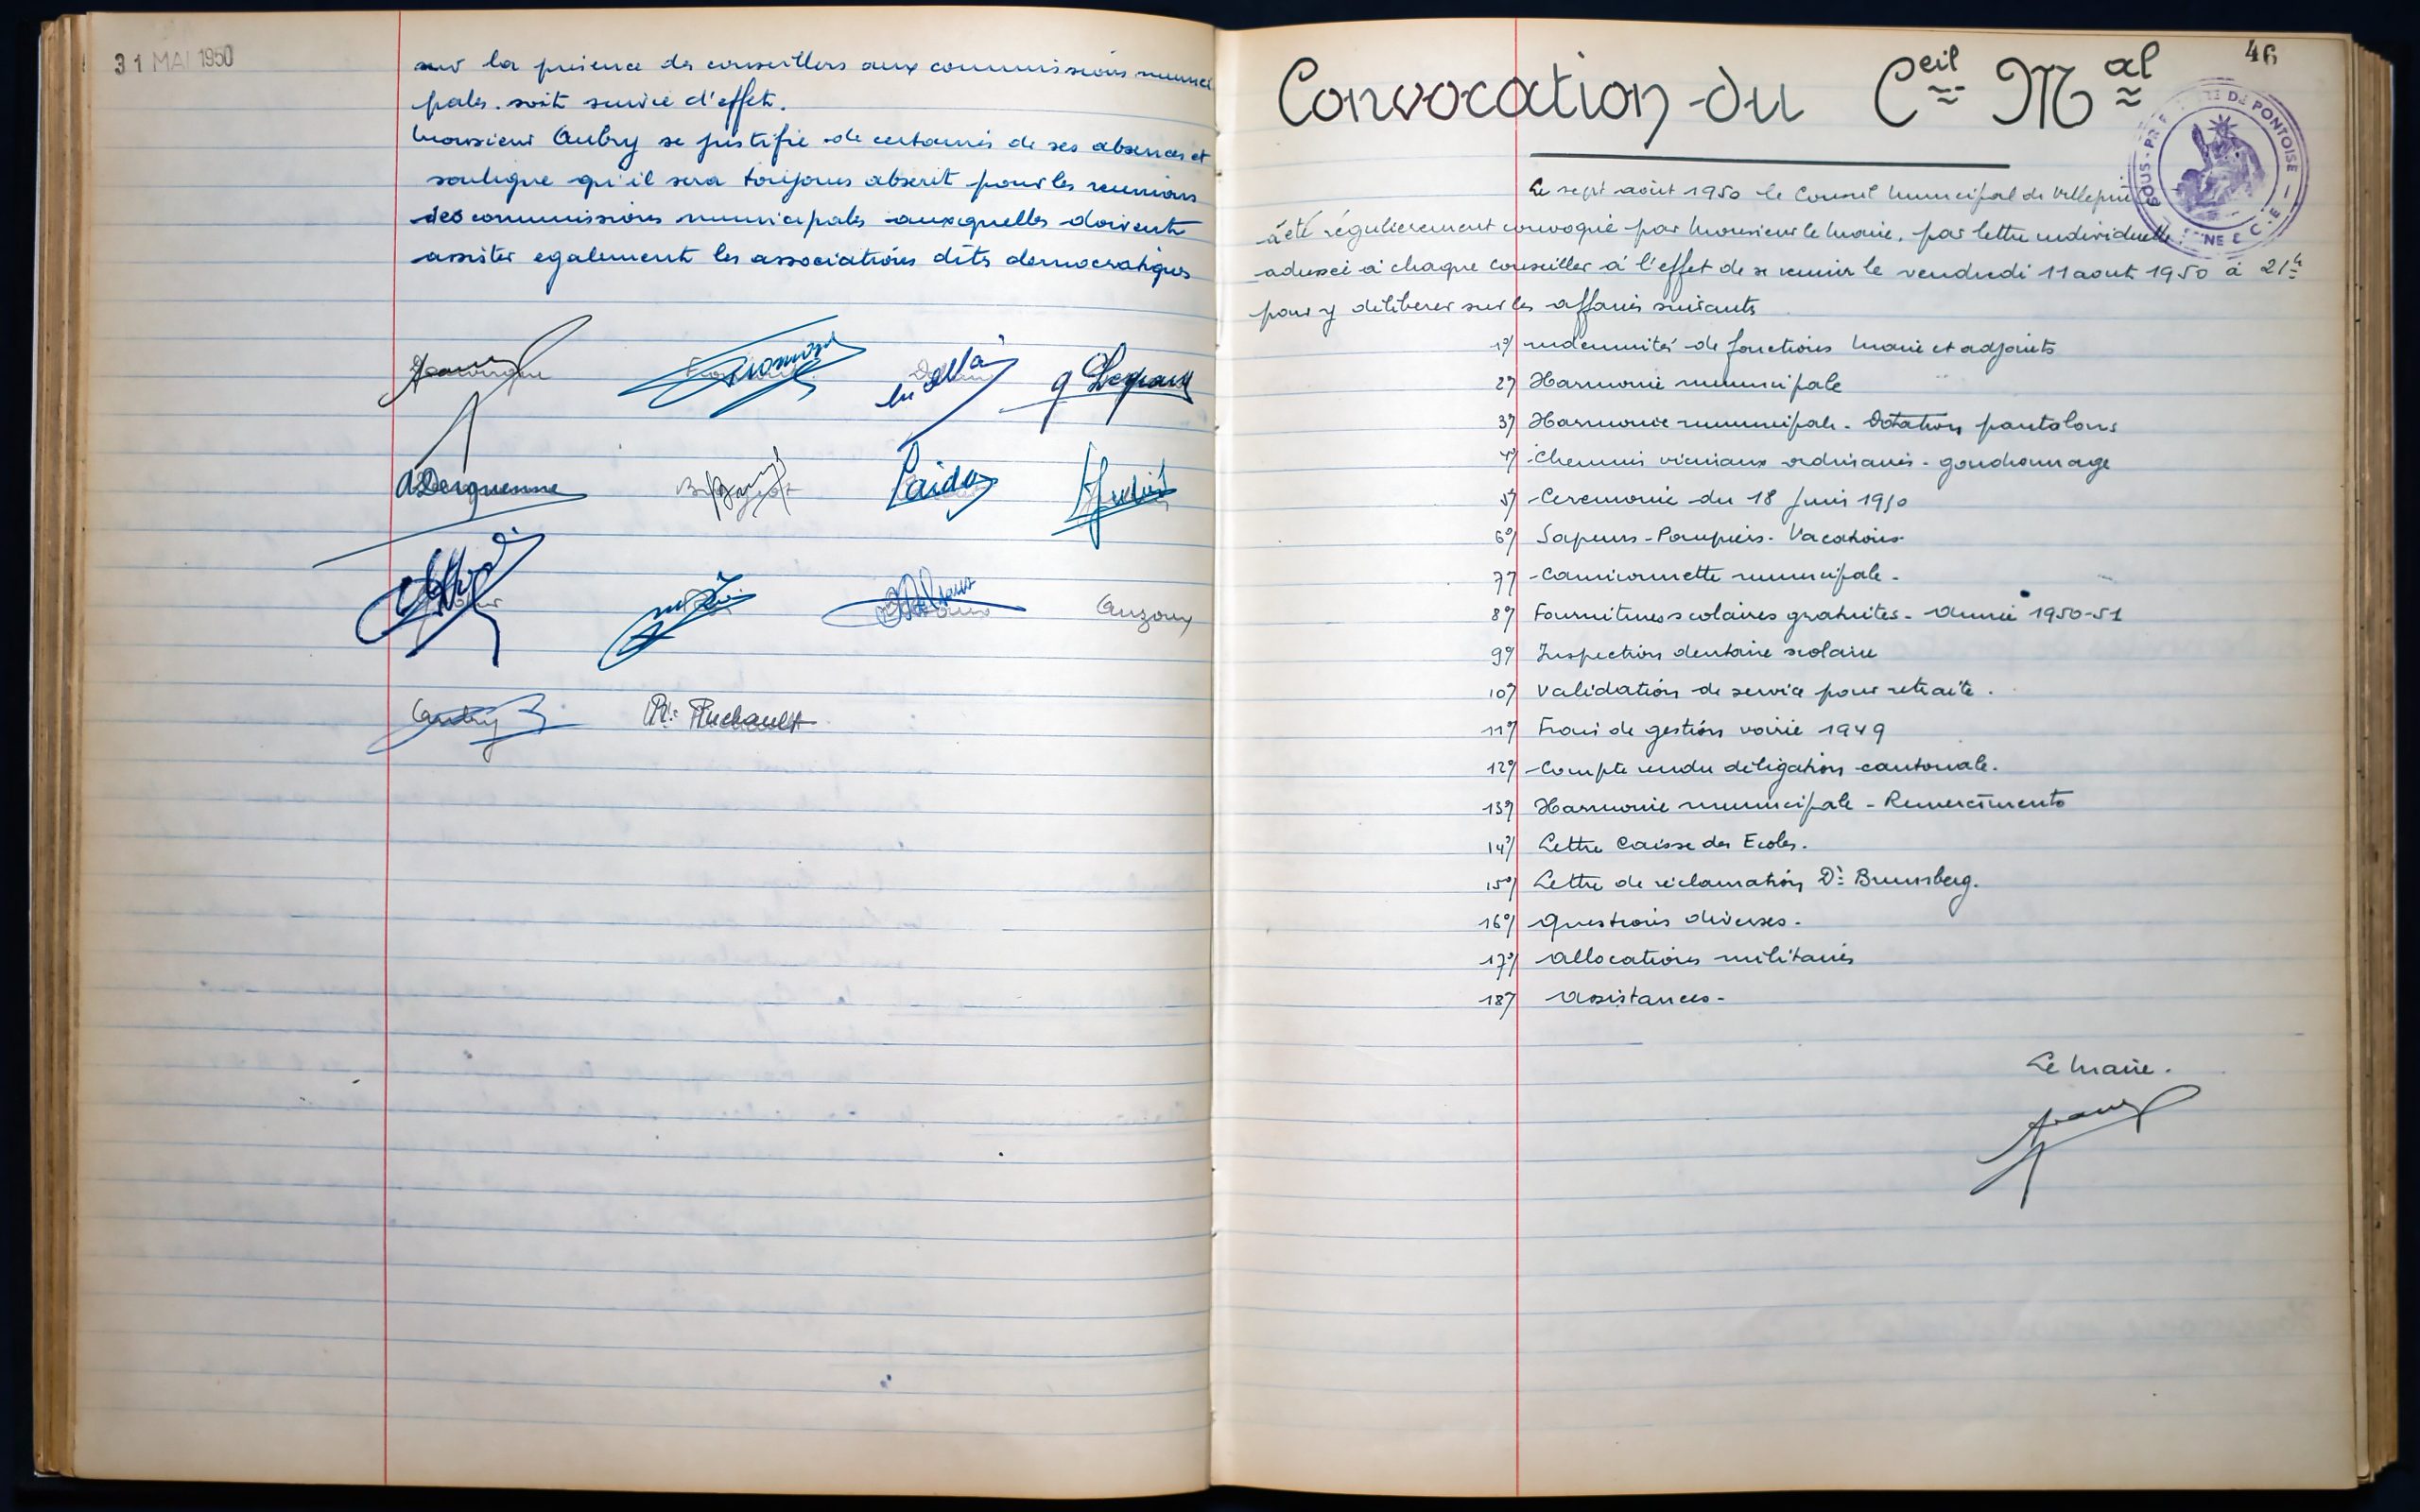 31 MAI 1950
sur la présence des conseillers aux commissions munici
pales. soit suivie d'effet.
Monsieur Aubry se justifie de certaines de ses absences et
souligne qu'il sera toujours absent pour les reunions
des commissions municipales auxquelles doivent
assister egalement les associations dites democratiques
G Legrand
ADerquenne
Laida
Auzoux
Aubry
R. Ruchault
46
Convocation du Ceil Mal
SOUS-PREFECTURE DE PONTOISE
Le sept août 1950 le Conseil Municipal de Villepinte
à été régulierement convoqué par Monsieur le Maire, par lettre individuelle
adressée à chaque conseiller à l'effet de se reunir le vendredi 11 aout 1950 à 21h
pour y deliberer sur les affaires suivants
1°/ indemnités de fonctions Maire et adjoints
2°/ Harmonie municipale
3°/ Harmonie municipale - Dotation pantalons
4°/ -Chemins vicinaux ordinaires - goudronnage
5°/ -Ceremonie du 18 Juin 1950
6°/ Sapeurs-Pompiers - Vacations
7°/ -Camionnette municipale -
8°/ Fournitures scolaires gratuites - Année 1950-51
9°/ Inspection dentaire scolaire
10°/ Validation de service pour retraite.
11°/ Frais de gestion voirie 1949
12°/ -Compte rendu déligation cantonale.
13°/ Harmonie municipale - Remerciments
14°/ Lettre Caisse des Ecoles.
15°/ Lettre de réclamation Dr Brunsberg.
16°/ Questions diverses.
17°/ Allocations militaires
18°/ Assistances-
Le Maire.